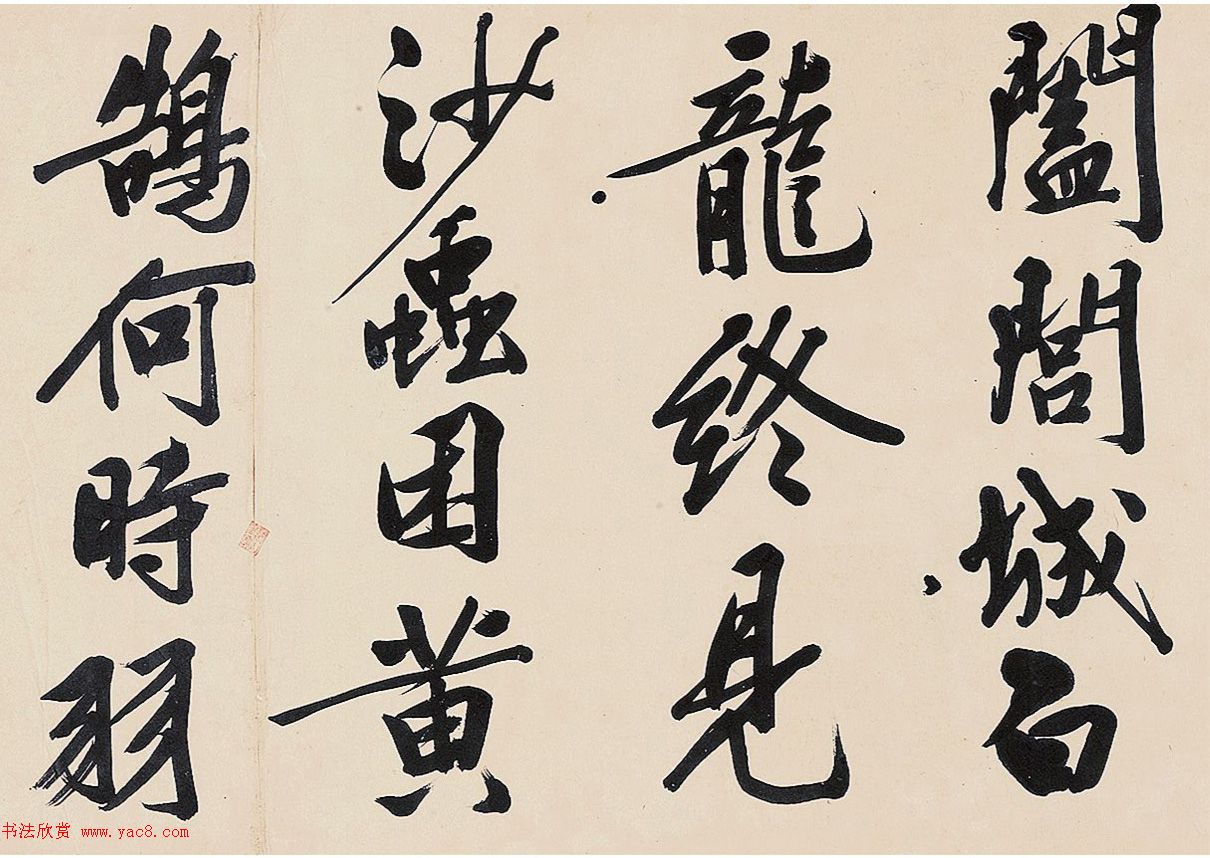 闔閭城白
龍終見
沙蟲困黄
鵠何時羽
书法欣赏 www.yac8.com